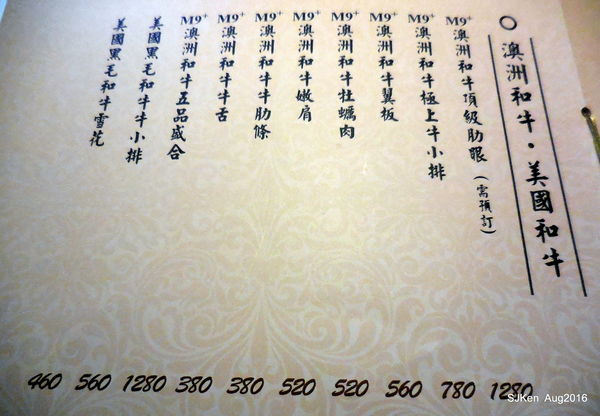 澳洲和牛·美國和牛
M9+澳洲和牛頂級肋眼(需預訂)
M9+澳洲和牛極上牛小排
M9+澳洲和牛翼板
M9+澳洲和牛牡蠣肉
M9+澳洲和牛嫩肩
M9+澳洲和牛牛肋條
M9+澳洲和牛牛舌
M9+澳洲和牛五品盛合
美國黑毛和牛牛小排
美國黑毛和牛雪花
460 560 1280 380 380 520 520 560 780 1280
SJKen Aug2016